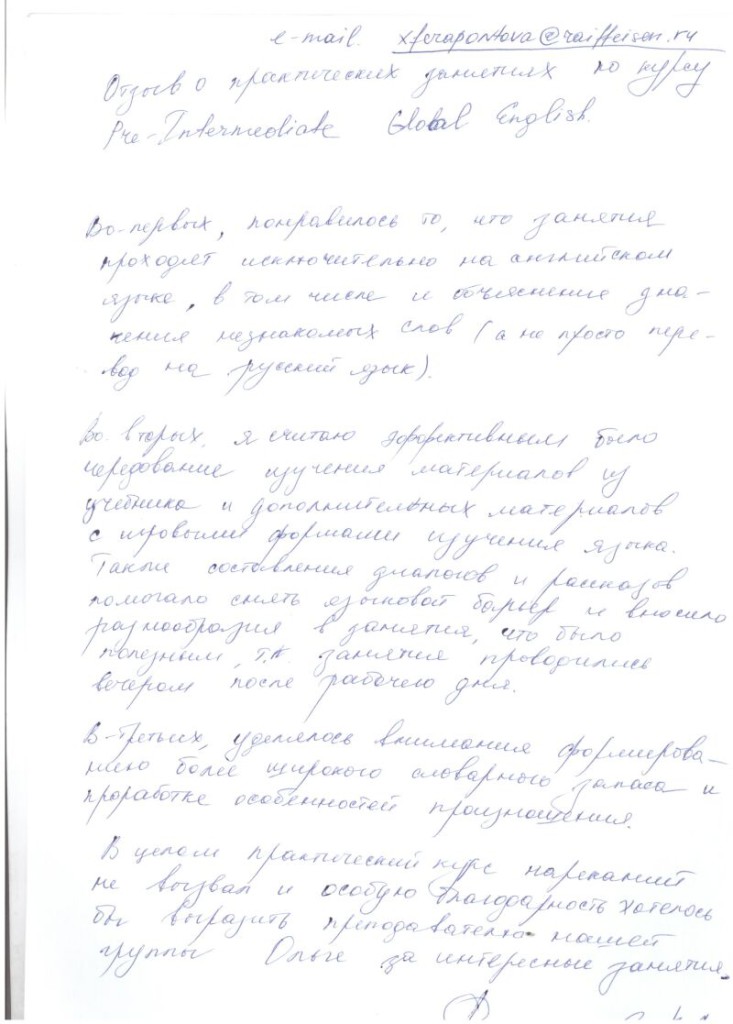 e-mail. xferapontova@raiffeisen.ru
Отзыв о практических занятиях по курсу
Pre-Intermediate Global English.
Во-первых, понравилось то, что занятия
проходят исключительно на английском
языке, в том числе и объяснение зна-
чения незнакомых слов (а не просто пере-
вод на русский язык).
Во вторых, я считаю эффективным было
чередование изучения материалов из
учебника и дополнительных материалов
с игровыми формами изучения языка.
Также составления диалогов и рассказов
помогало снять языковой барьер и вносило
разнообразия в занятия, что было
полезным, т.к. занятия проводились
вечером после рабочего дня.
В-третьих, уделялось внимания формирова-
нию более широкого словарного запаса и
проработке особенностей произношения.
В целом практический курс нареканий
не вызвал и особую благодарность хотелось
бы выразить преподавателю нашей
группы Ольге за интересные занятия.